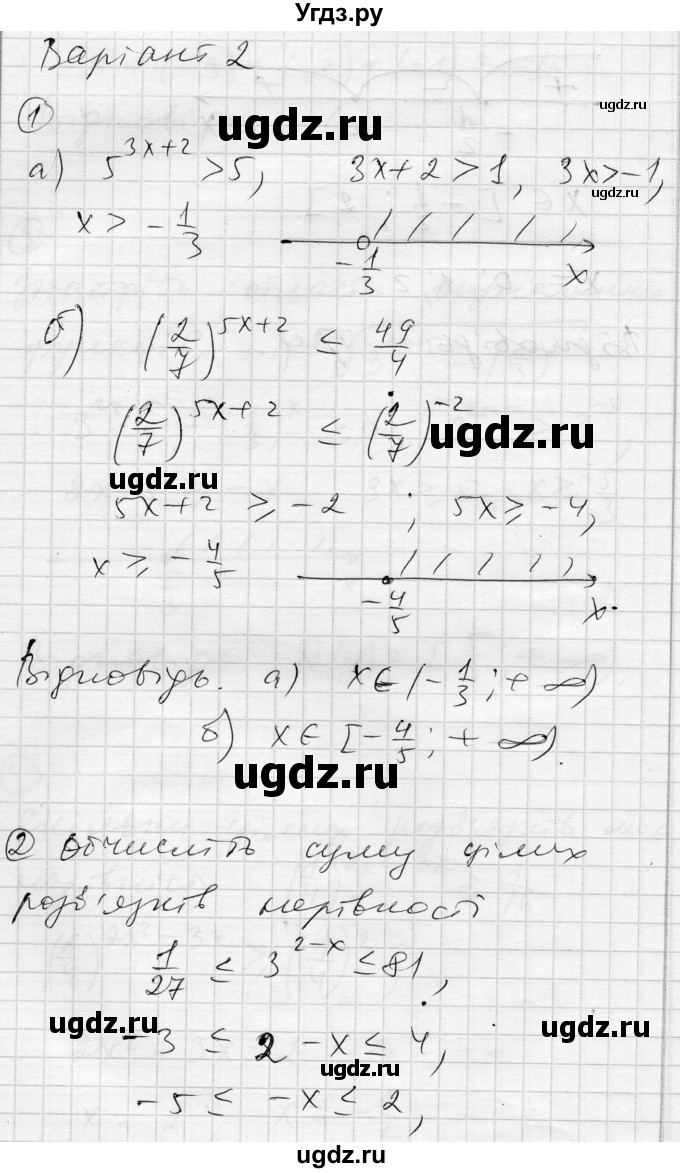 Угдз.ру
Варіант 2
ugdz.ru
ugdz.ru
1
а) 5^(3x+2) > 5, 3x+2 > 1, 3x > -1,
ugdz.ru
x > -1/3
-1/3 x
б) (2/7)^(5x+2) ≤ 49/4
(2/7)^(5x+2) ≤ (2/7)^(-2)
ugdz.ru
ugdz.ru
5x+2 ≥ -2 ; 5x ≥ -4,
x ≥ -4/5
-4/5 x
Відповідь. а) x∈(-1/3; +∞)
б) x∈[-4/5; +∞)
ugdz.ru
2 Обчисліть суму цілих
розв'язків нерівності
1/27 ≤ 3^(2-x) ≤ 81,
ugdz.ru
ugdz.ru
-3 ≤ 2-x ≤ 4,
ugdz.ru
-5 ≤ -x ≤ 2,
ugdz.ru